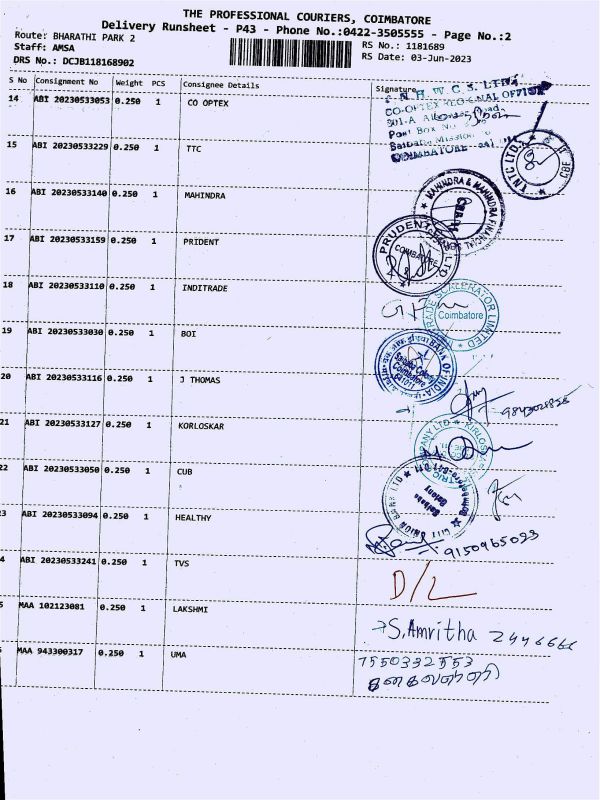 THE PROFESSIONAL COURIERS, COIMBATORE
Delivery Runsheet - P43 - Phone No.:0422-3505555 - Page No.:2
Route: BHARATHI PARK 2
RS No.: 1181689
Staff: AMSA
RS Date: 03-Jun-2023
DRS No.: DCJB118168902
S No Consignment No Weight PCS Consignee Details Signature
14 ABI 20230533053 0.250 1 CO OPTEX
CO-OPTEX REGIONAL OFFICE
Post Box No
COIMBATORE
15 ABI 20230533229 0.250 1 TTC
TNTC LTD. CBE
16 ABI 20230533140 0.250 1 MAHINDRA
MAHINDRA & MAHINDRA FINANCIAL
17 ABI 20230533159 0.250 1 PRIDENT
PRUDENT LTD
COIMBATORE
18 ABI 20230533110 0.250 1 INDITRADE
TRADE SCALERATOR LIMITED
Coimbatore
19 ABI 20230533030 0.250 1 BOI
BANK OF INDIA
Coimbatore
641011
20 ABI 20230533116 0.250 1 J THOMAS
21 ABI 20230533127 0.250 1 KORLOSKAR
22 ABI 20230533050 0.250 1 CUB
CITY UNION BANK LTD
Colony
3 ABI 20230533094 0.250 1 HEALTHY
9150965023
4 ABI 20230533241 0.250 1 TVS
D/L
5 MAA 102123081 0.250 1 LAKSHMI
S. Amritha 2446666
MAA 943300317 0.250 1 UMA
7550332553